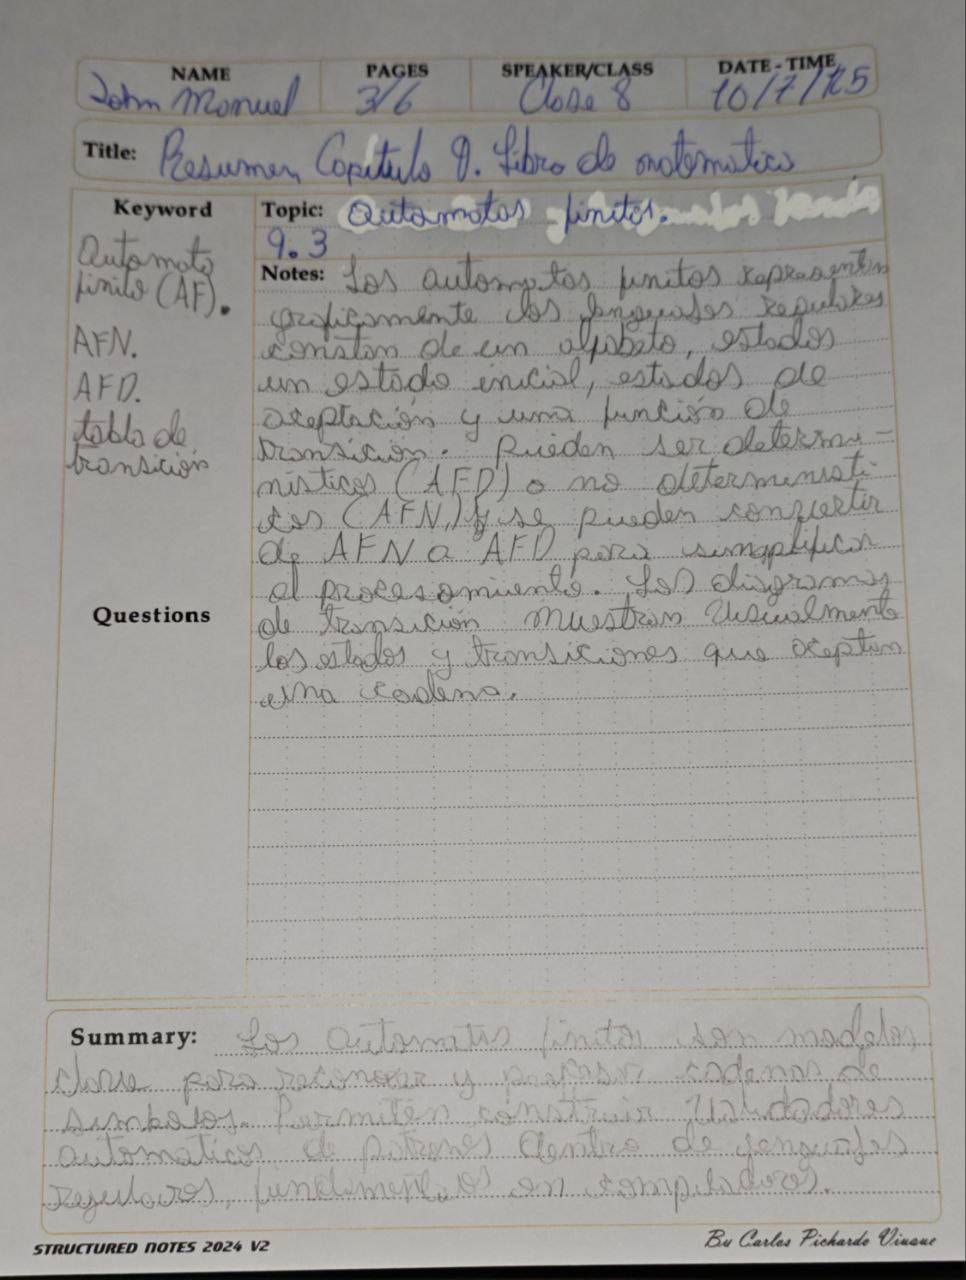 NAME PAGES SPEAKER/CLASS DATE - TIME
John Manuel 3/6 Clase 8 10/7/25
Title: Resumen Capitulo 9. Libro de matematica
Keyword
Automata
finito (AF).
AFN.
AFD.
tabla de
transición
Questions
Topic: Automatas finitos.
9.3
Notes: Los automatas finitos representan
graficamente los lenguajes regulares
constan de un alfabeto, estados
un estado inicial, estados de
aceptación y una función de
transición. Pueden ser determi-
nisticos (AFD) o no deterministi-
cos (AFN) y se pueden convertir
de AFN a AFD para simplificar
el procesamiento. Los diagramas
de transición muestran visualmente
los estados y transiciones que aceptan
una cadena.
Summary: Los automatas finitos son modelos
clave para reconocer y procesar cadenas de
simbolos. Permiten construir validadores
automaticos de patrones dentro de lenguajes
regulares, fundamentales en compiladores.
STRUCTURED NOTES 2024 V2
By Carlos Pichardo Viuque